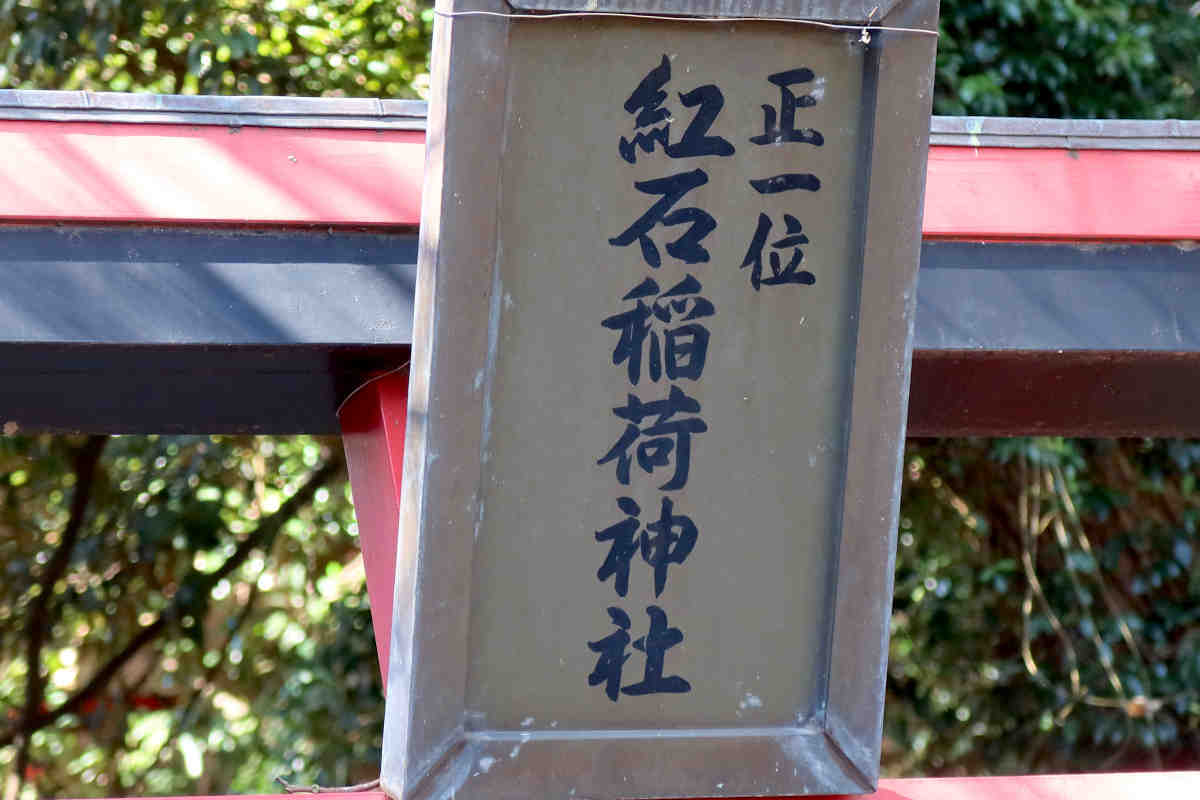 正一位
紅石稲荷神社